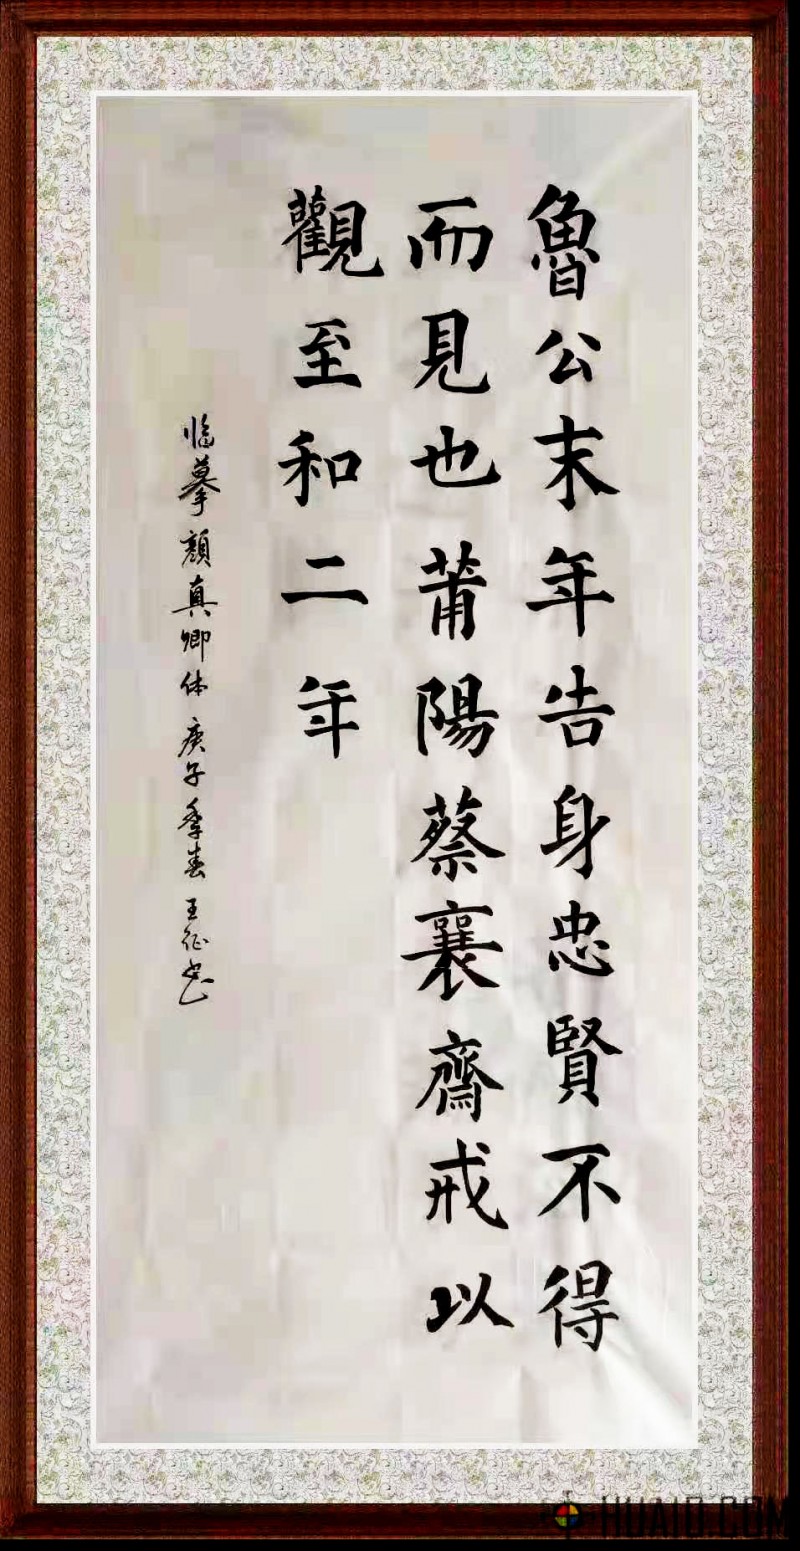 魯公末年告身忠賢不得
而見也莆陽蔡襄齋戒以
觀至和二年
临摹顔真卿体庚子季春王征书
HUAIO.COM